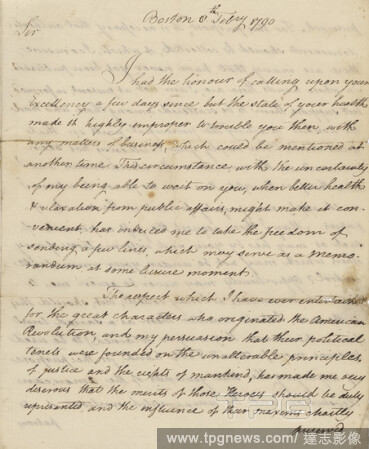 Boston 8th Febry 1790
Sir
I had the honour of calling upon your
Excellency a few days since but the state of your health
made it highly improper to trouble you then, with
any matters of business, which could be mentioned at
another time. This circumstance with the uncertainty
of my being able to wait on you, when better health
& relaxation from public affairs, might make it con-
venient, has induced me to take the freedom of
sending a few lines, which may serve as a memo-
randum at some leisure moment.
The respect which I have ever entertained
for the great characters who originated the American
Revolution, and my persuasion that their political
tenets were founded on the unalterable principles,
of justice and the rights of mankind, has made me very
desirous that the merits of those Heroes should be duly
represented and the influence of their maxims chastly
preserved
www.tpgnews.com / 達志影像